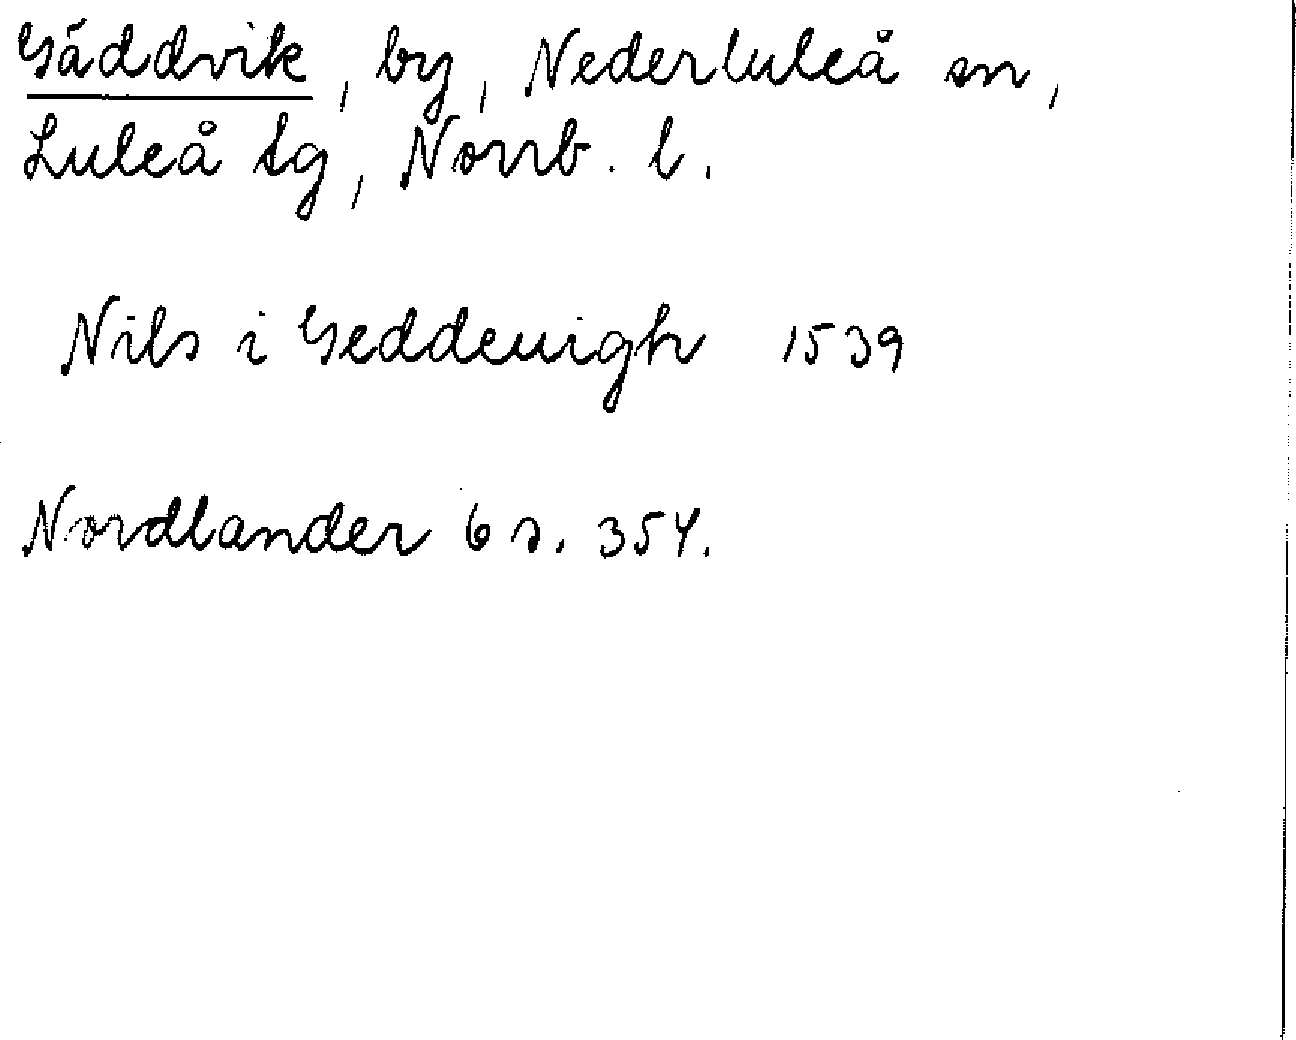 Gäddvik, by, Nederluleå sn,
Luleå tg, Norrb. l.
Nils i Geddeuigh 1539
Nordlander 6 s. 354.